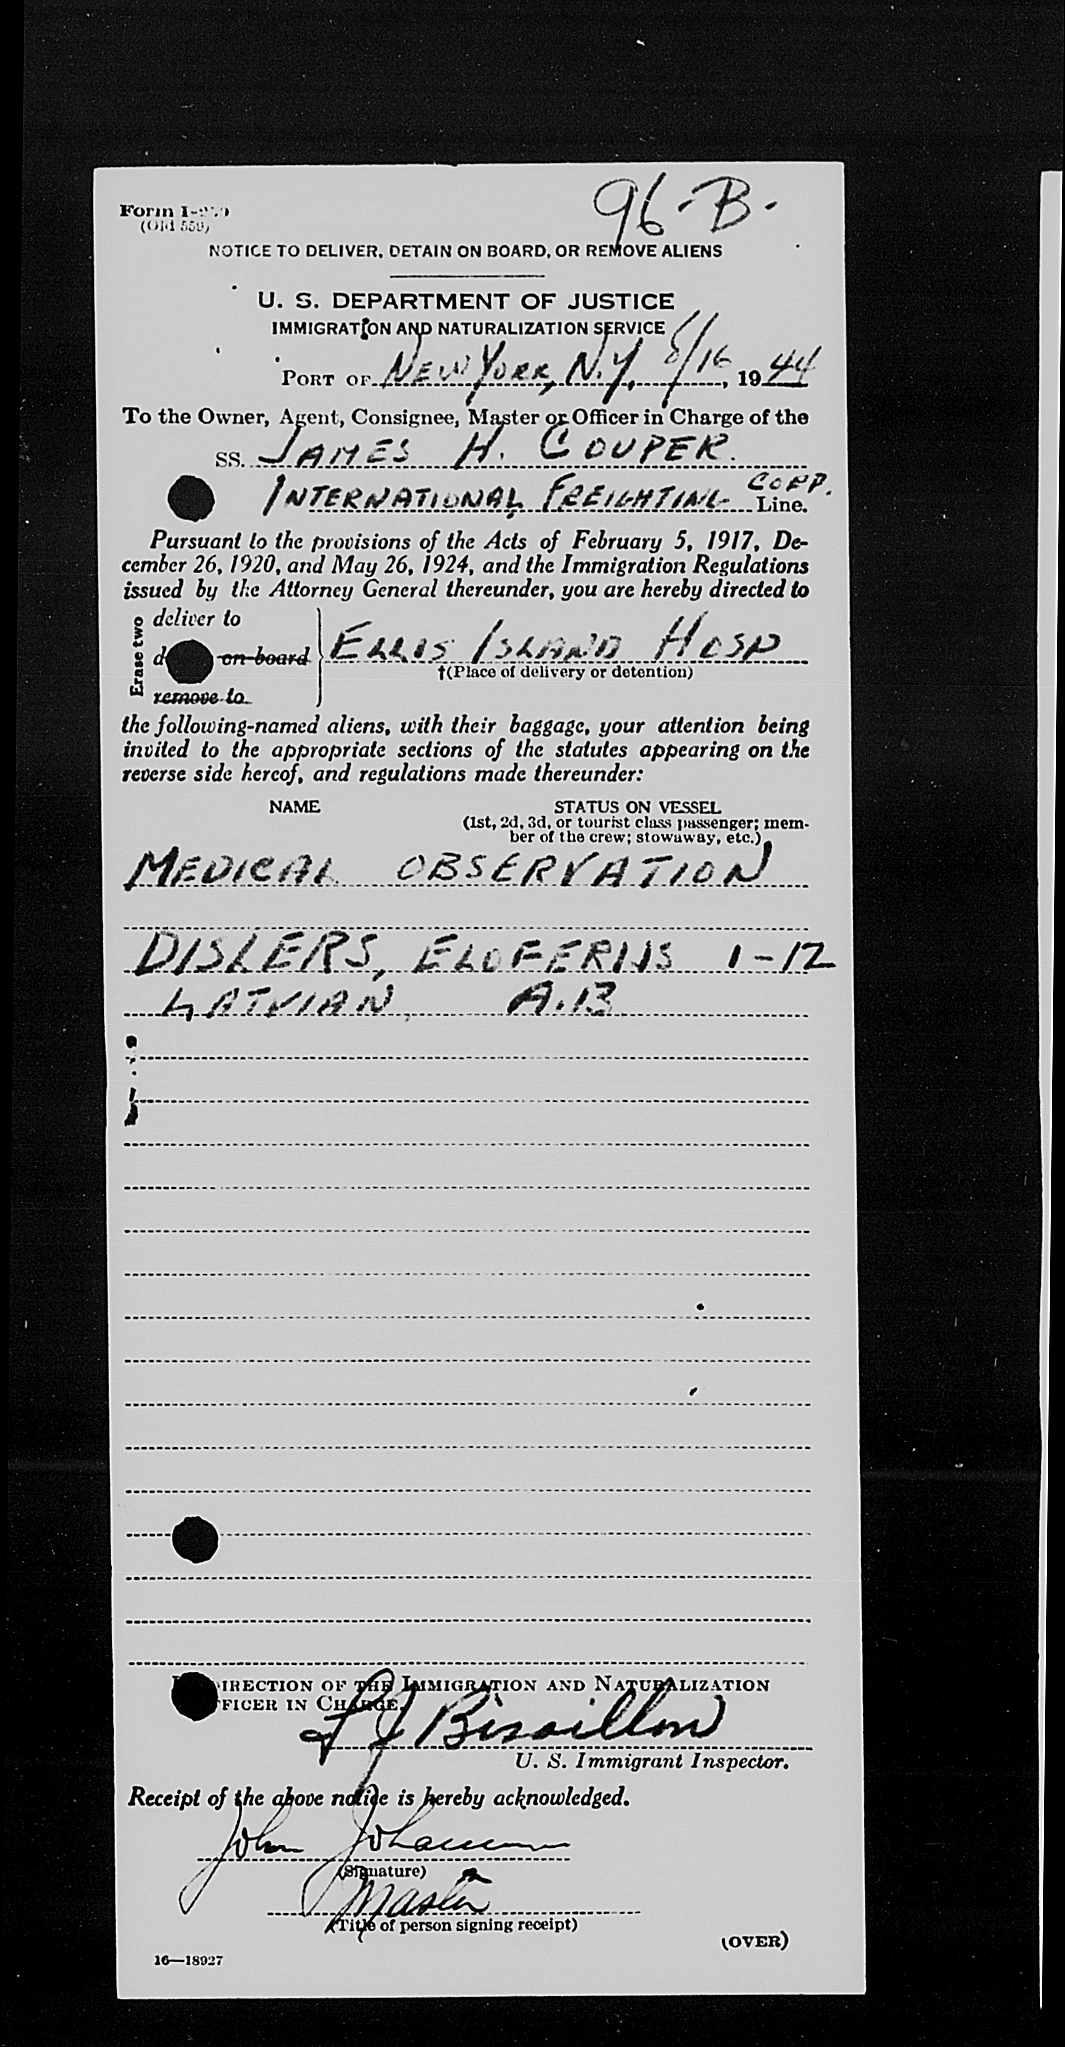 96-B.
Form I-259
(Old 559)
NOTICE TO DELIVER, DETAIN ON BOARD, OR REMOVE ALIENS
U. S. DEPARTMENT OF JUSTICE
IMMIGRATION AND NATURALIZATION SERVICE
PORT OF NEW YORK, N.Y. 8/16, 1944
To the Owner, Agent, Consignee, Master or Officer in Charge of the
SS. JAMES H. COUPER.
INTERNATIONAL FREIGHTING CORP. Line.
Pursuant to the provisions of the Acts of February 5, 1917, De-
cember 26, 1920, and May 26, 1924, and the Immigration Regulations
issued by the Attorney General thereunder, you are hereby directed to
Erase two
deliver to
d on board ELLIS ISLAND HOSP
†(Place of delivery or detention)
remove to
the following-named aliens, with their baggage, your attention being
invited to the appropriate sections of the statutes appearing on the
reverse side hereof, and regulations made thereunder:
NAME STATUS ON VESSEL
(1st, 2d, 3d, or tourist class passenger; mem-
ber of the crew; stowaway, etc.)
MEDICAL OBSERVATION
DISLERS, ELOFERIJS 1-12
LATVIAN, A.B
DIRECTION OF THE IMMIGRATION AND NATURALIZATION
FFICER IN CHARGE.
L J Bissillon
U. S. Immigrant Inspector.
Receipt of the above notice is hereby acknowledged.
John
(Signature)
Master
(Title of person signing receipt)
(OVER)
16—18927